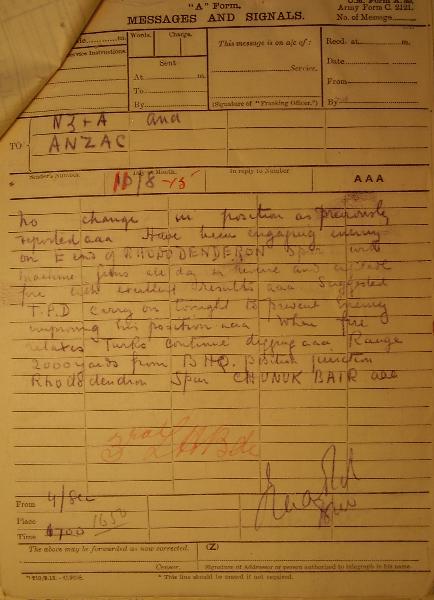 "A" Form.
Army Form C. 2121.
MESSAGES AND SIGNALS.
No. of Message
m.
Words.
Charge.
This message is on a/c of:
Recd. at m.
Service Instructions.
Sent
Date
At m.
Service.
From
To
By
(Signature of "Franking Officer.")
By
TO
NZ & A and
ANZAC
Sender's Number.
Day of Month.
In reply to Number
AAA
10/8 -15
No change in position as previously
reported aaa Have been engaging enemy
on E end of RHODODENDERON Spur with
machine guns all day
fire with excellent results aaa Suggested
T.B.D carry on tonight to prevent enemy
improving his position aaa When fire
relaxes Turks continue digging aaa Range
2000 yards from BHQ. British junction
Rhododendron Spur CHUNUK BAIR aaa
From
Place
1650
Time
The above may be forwarded as now corrected.
(Z)
Censor.
Signature of Addressor or person authorised to telegraph in his name.
* This line should be erased if not required.